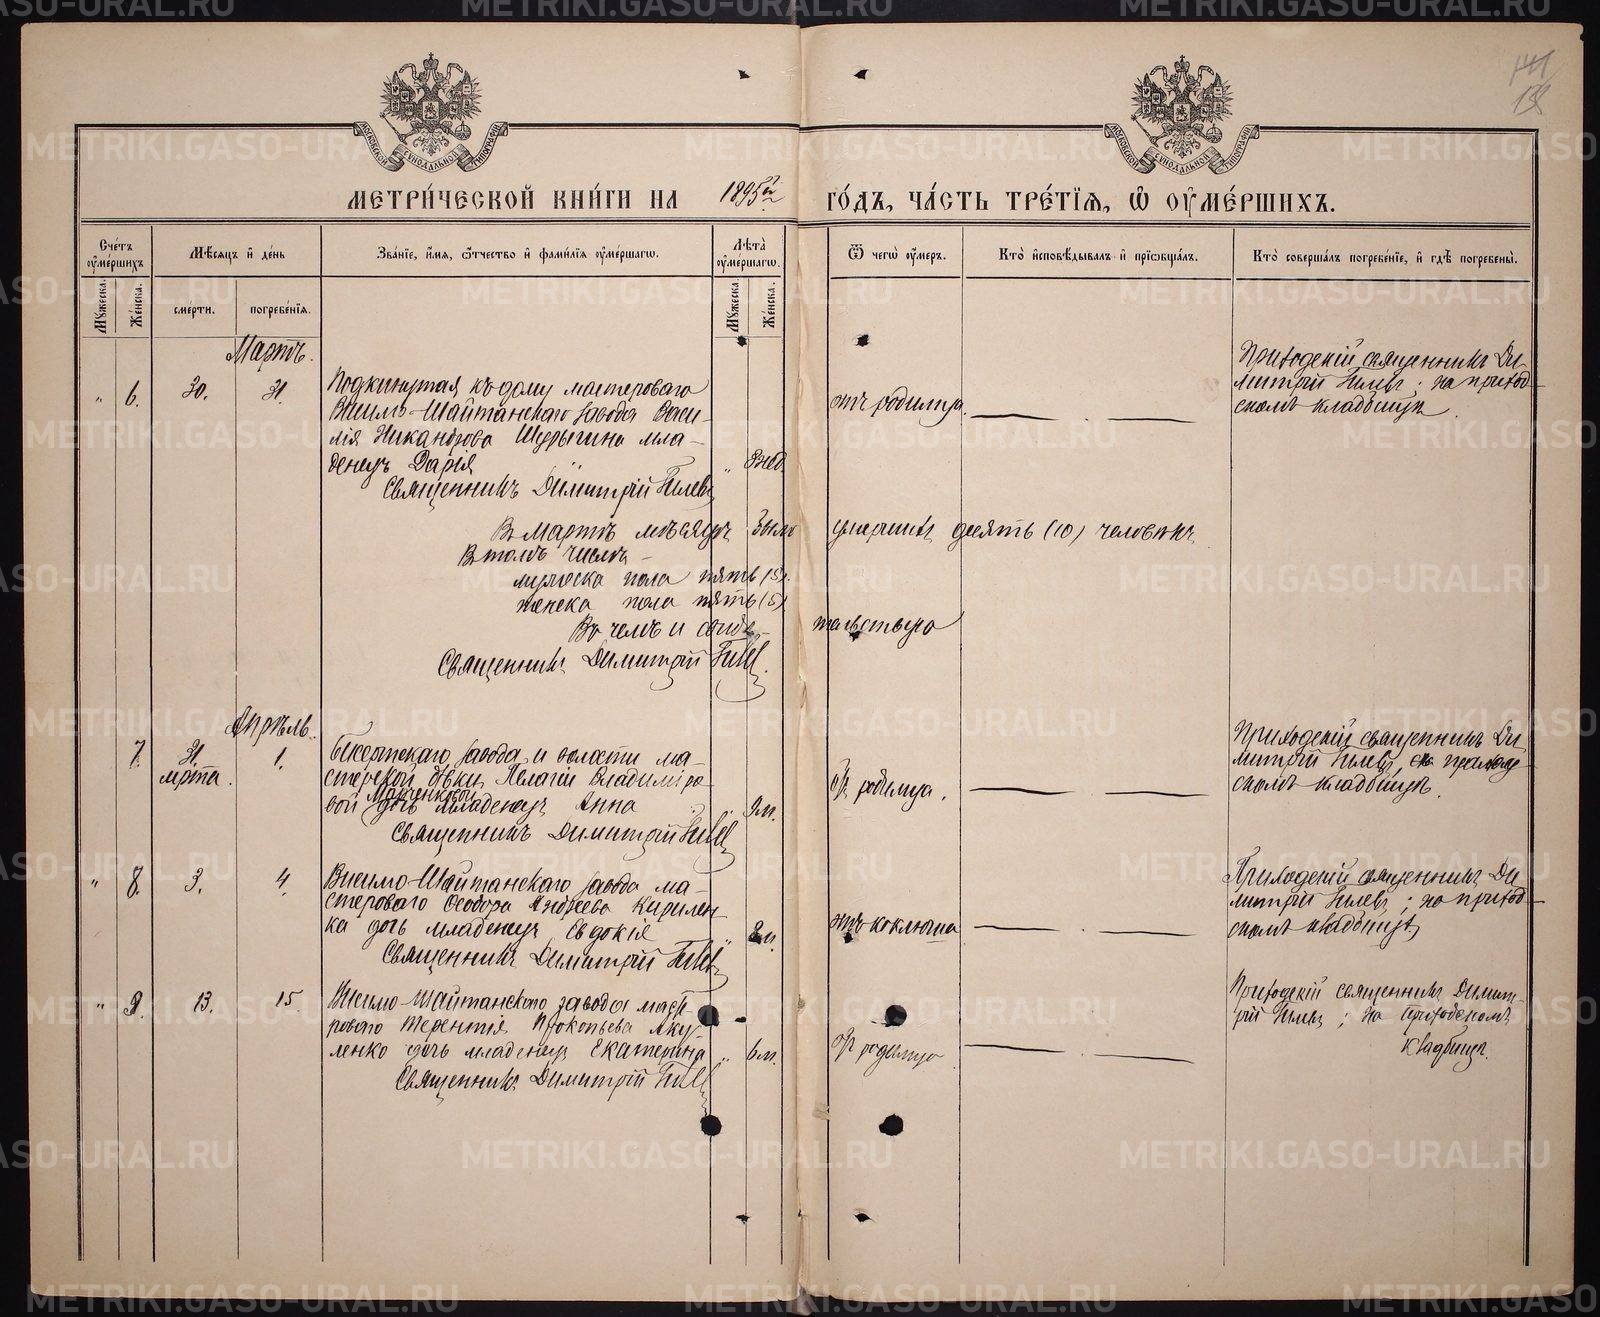 МЕТРИ́ЧЕСКОЙ КНИ́ГИ НА 1895й ГО́ДЪ, ЧА́СТЬ ТРЕ́ТЇѦ, Ѽ ОУ҆МЕ́РШИХЪ.
МОСКОВСКОЙ СѴНОДАЛЬНОЙ ТИПОГРАФІИ
МОСКОВСКОЙ СѴНОДАЛЬНОЙ ТИПОГРАФІИ
Сче́тъ оу҆ме́ршихъ
Мѣ́сяцъ и҆ де́нь
Зва́ніе, и҆́мя, ѻ҆́тчество и҆ фами́лія оу҆ме́ршагѡ.
Лѣ́та оу҆ме́ршагѡ.
Ѿ чегѡ̀ оу҆́меръ.
Кто̀ и҆сповѣ́дывалъ и҆ прїѡбща́лъ.
Кто̀ соверша́лъ погребе́ніе, и҆ гдѣ̀ погребены̀.
Мꙋ́жеска.
Же́нска.
сме́рти.
погребе́нїя.
Мꙋ́жеска.
Же́нска.
Мартъ.
„ 6. 30. 31.
Подкинутая къ дому мастероваго
Висимо-Шайтанскаго завода Васи-
лія Никандрова Шурыгина мла-
денецъ Дарія „ 3 нед.
Священникъ Димитрій Гилевъ
отъ родимца.
Приходскій священникъ Ди-
митрій Гилевъ; на приход-
скомъ кладбищѣ.
Въ Мартѣ мѣсяцѣ было умершихъ десять (10) человѣкъ
Въ томъ числѣ
мужеска пола пять (5).
женска пола пять (5)
Въ чемъ и свидѣ-
тельствую
Священникъ Димитрій Гилевъ.
Апрѣль.
7. 31. марта. 1.
Бисертскаго завода и волости ма-
стерской дѣвки Пелагіи Владиміро-
вой дочь младенецъ Анна „ 9 м.
Священникъ Димитрій Гилевъ
отъ родимца.
Приходскій священникъ Ди-
митрій Гилевъ, на приход-
скомъ кладбищѣ.
„ 8. 3. 4.
Висимо-Шайтанскаго завода ма-
стероваго Ѳеодора Андреева Кирилен-
ка дочь младенецъ Евдокія „ 8 м.
Священникъ Димитрій Гилевъ
отъ коклюша
Приходскій священникъ Ди-
митрій Гилевъ; на приход-
скомъ кладбищѣ
„ 9. 13. 15.
Висимо-Шайтанскаго завода масте-
роваго Терентія Прокопьева Аку-
ленко дочь младенецъ Екатерина „ 6 м.
Священникъ Димитрій Гилевъ
отъ родимца
Приходскій священникъ Димит-
рій Гилевъ; на приходскомъ
кладбищѣ.
METRIKI.GASO-URAL.RU